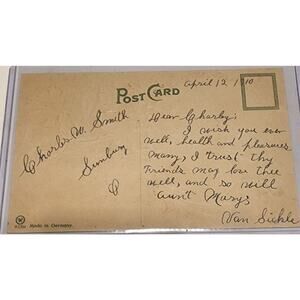 April 12 /10
POST CARD
Dear Charley;
I wish you ever
well, health and pleasures
many, I trust thy
Friends may love thee
well, and so will
aunt Marys
Van Sickle
Charles W. Smith
Sunbury
O
Made in Germany.